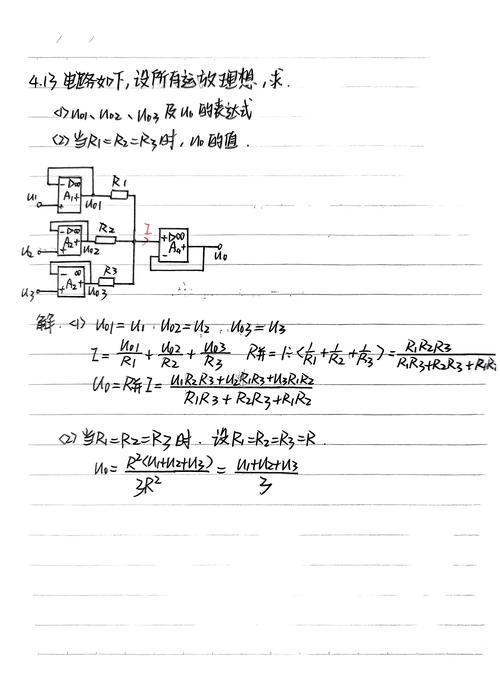 4.13 电路如下,设所有运放理想,求.
<1> u01、u02、u03 及 u0 的表达式
<2> 当R1=R2=R3时, u0 的值.
R1
- ▷∞
u1
A1+
+
u01
R2
I
- ▷∞
+▷∞
u2
A2+
+
u02
A4+
-
u0
R3
- ∞
u3
A2+
+
u03
解. <1> u01=u1 . u02=u2 . u03=u3
I = u01/R1 + u02/R2 + u03/R3 R并=1÷(1/R1+1/R2+1/R3)= R1R2R3/(R1R3+R2R3+R1R
U0=R并I= (u1R2R3+u2R1R3+u3R1R2)/(R1R3+R2R3+R1R2)
<2> 当R1=R2=R3时. 设R1=R2=R3=R.
u0= R²(u1+u2+u3)/3R² = (u1+u2+u3)/3